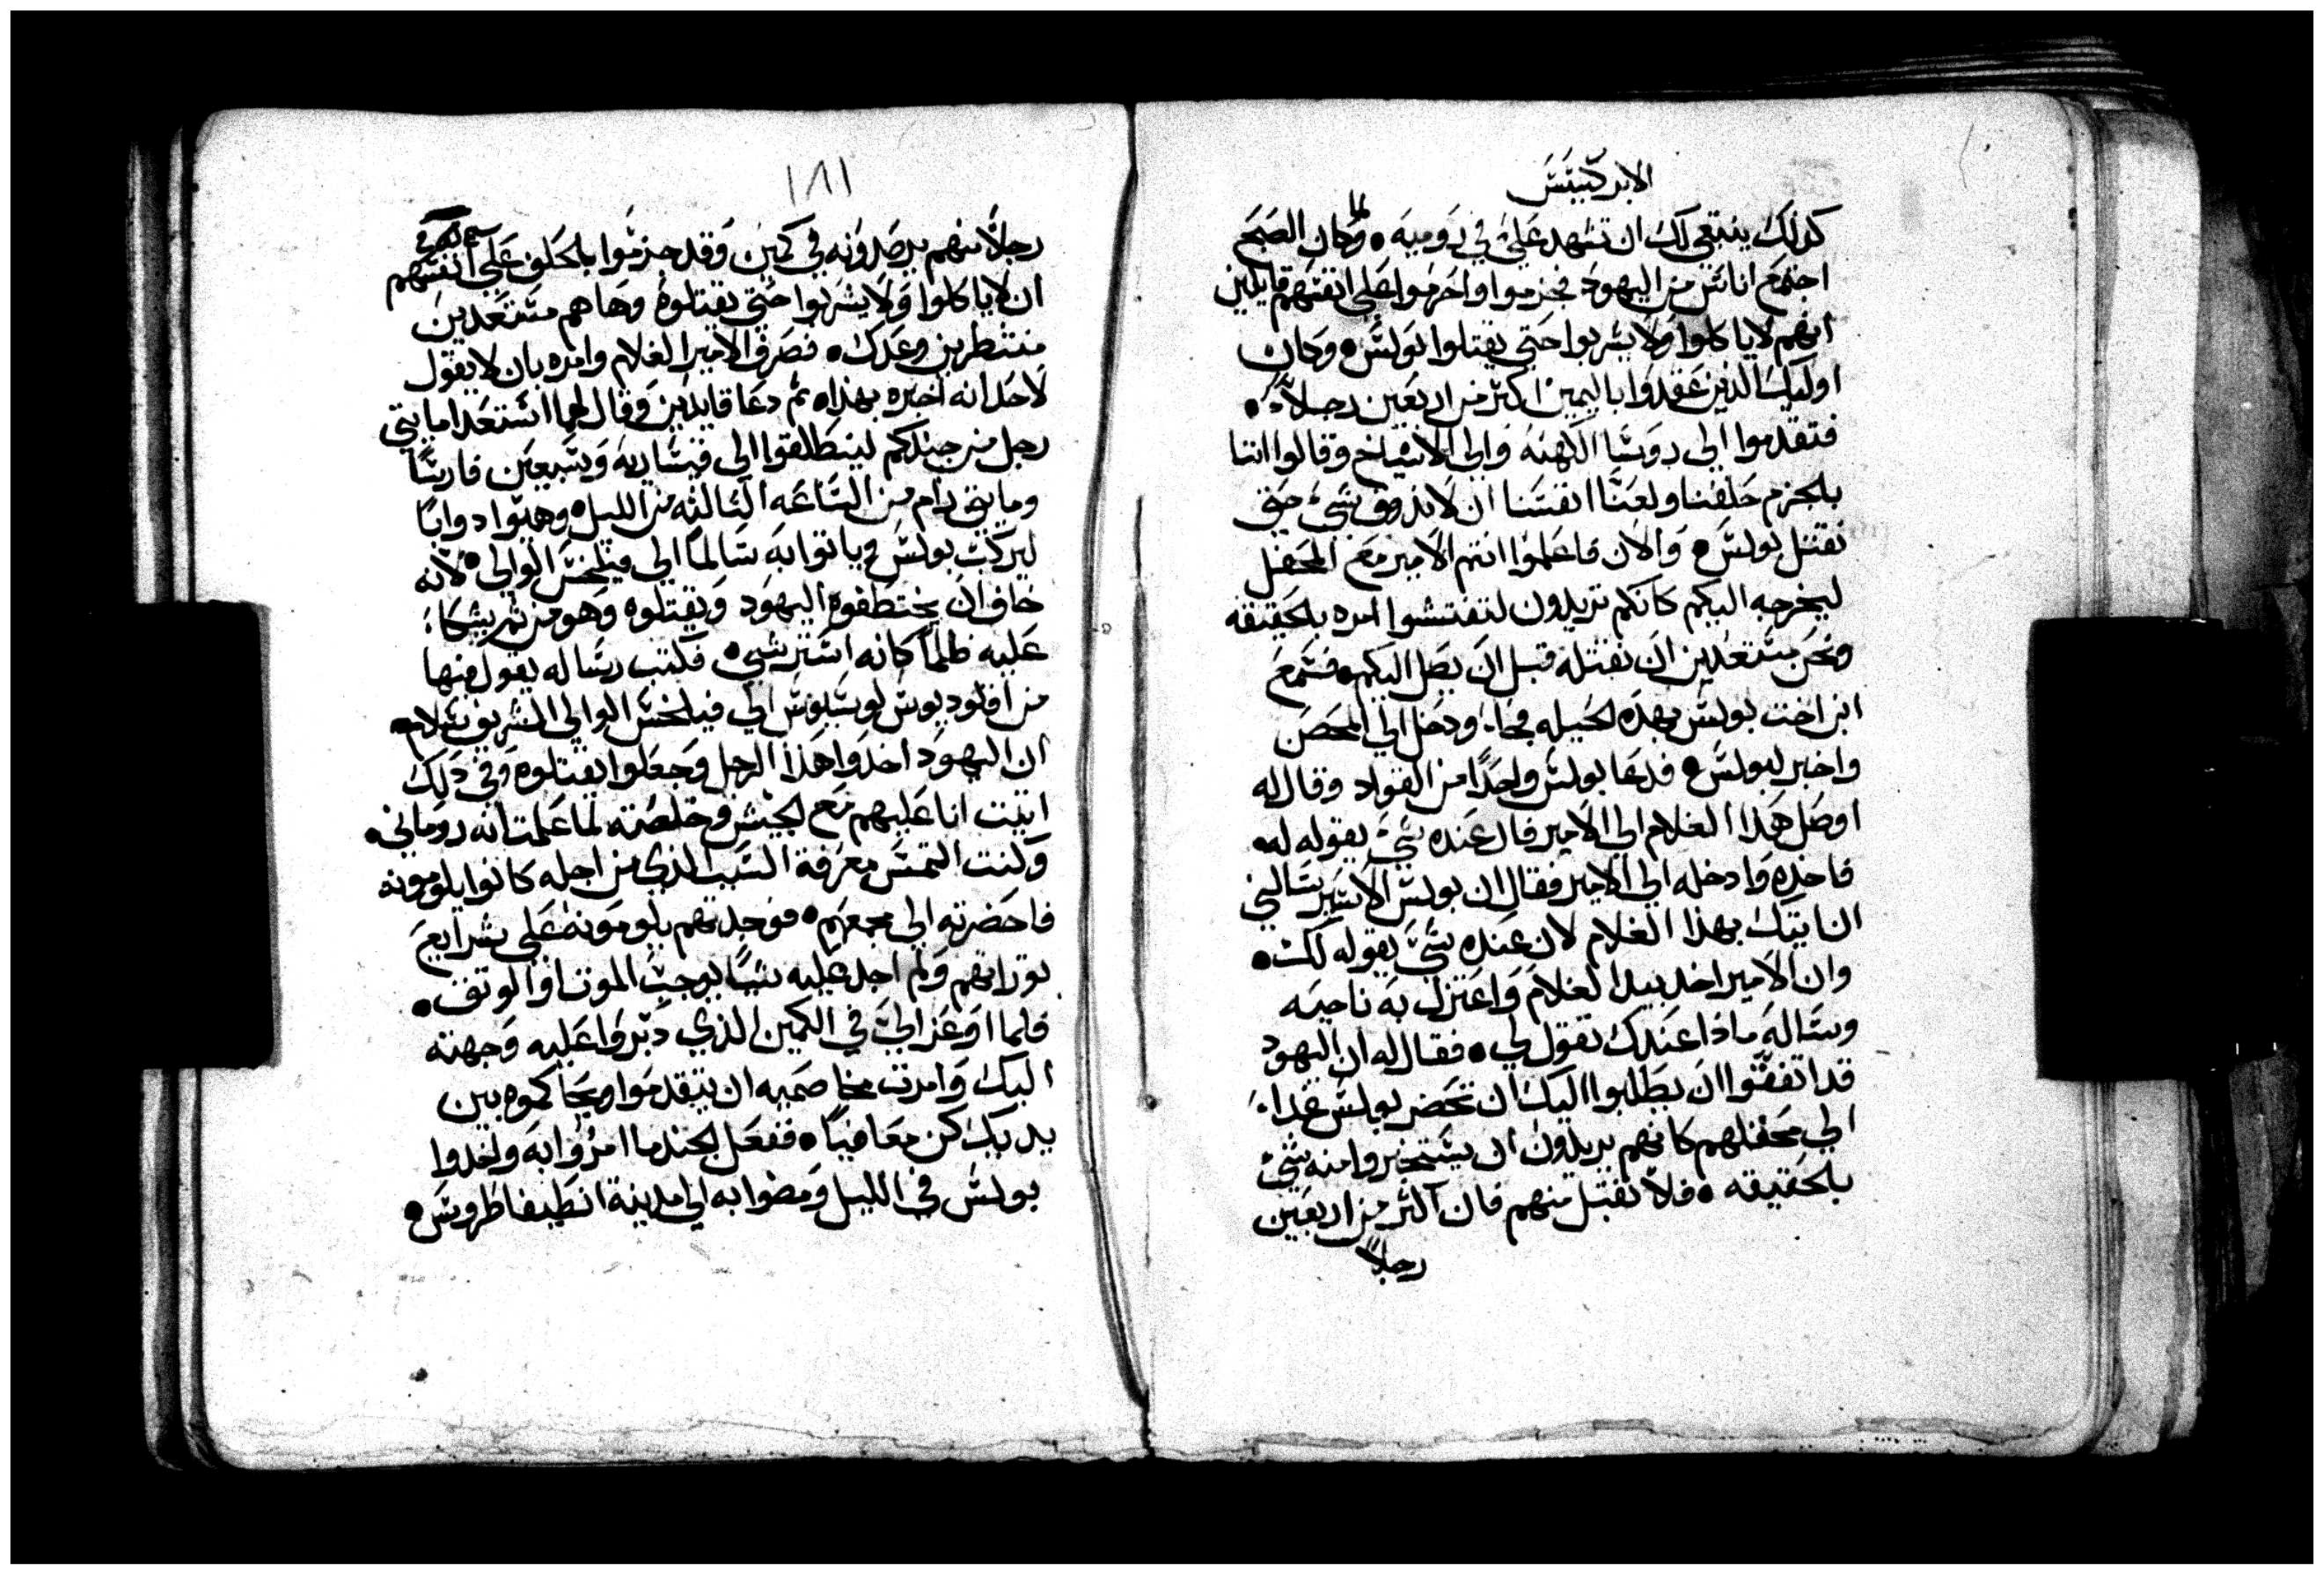 الابركسيس
كذلك ينبغي لك ان تشهد علي في روميه ● ولما كان الصبح
اجتمع اناس من اليهود فجزموا واحرموا علي انفسهم قايلين
انهم لا ياكلوا ولا يشربوا حتي يقتلوا بولس ● وكان
اوليك الذين عقدوا باليمين اكثر من اربعين رجلاً ●
فتقدموا الي روسا الكهنه والي الاشياخ وقالوا اننا
بالجزم حلفنا ولعنّا انفسنا ان لا نذوق شي حتي
نقتل بولس ● والان فاعلموا انتم الامير مع المحفل
ليخرجه اليكم كانكم تريدون لتفتشوا امره بالحقيقه
ونحن مستعدين ان نقتله قبل ان يصل اليكم ● فسمع
ابن اخت بولس بهذه الحيله فجاء ودخل الي الحصن
واخبر لبولس ● فدعا بولس واحدًا من القواد وقال له
اوصل هذا الغلام الي الامير فان عنده شي يقوله له
فاخذه وادخله الي الامير فقال ان بولس الاسير سالني
ان اتيك بهذا الغلام لان عنده شي يقوله لك ●
وان الامير اخذ بيد الغلام واعتزل به ناحيه
وساله ماذا عندك تقول لي ● فقال له ان اليهود
قد اتفقوا ان يطلبوا اليك ان تحضر بولس غداء
الي محفلهم كانهم يريدون ان يستخبروا منه شي
بالحقيقه ● فلا تقبل منهم فان اكثر من اربعين
رجلاً
١٨١
رجلاً منهم يرصدونه في كمين وقد جزموا بالحلف علي انفسهم
ان لا ياكلوا ولا يشربوا حتي يقتلوه وها هم مستعدين
منتظرين وعدك ● فصرف الامير الغلام وامره بان لا يقول
لاحد انه اخبره بهذا ● ثم دعا قايدين وقال لهما استعدا مايتي
رجل من جندكم لينطلقوا الي قيساريه وسبعين فارسًا
ومايتي رام من الساعه الثالثه من الليل ● وهيّوا دوابًا
ليركب بولس وياتوا به سالمًا الي فيلخس الوالي ● لانه
خاف ان يختطفوه اليهود ويقتلوه وهو من ثم يشكاء
عليه ظلمًا كانه ● فكتب رساله يقول فيها
من اقلوديوس لوسيوس الي فيلخس الوالي الشريف سلام ●
ان اليهود اخذوا هذا الرجل وجعلوا يقتلوه وفي ذلك
اتيت انا عليهم مع الجيش وخلصته لما علمت انه روماني ●
وكنت التمس معرفة السبب الذي من اجله كانوا يلومونه
فاحضرته الي مجمعهم ● فوجدتهم يلومونه علي شرايع
توراتهم ولم اجد عليه شيًا يوجب الموت او الوثق ●
فلما اوعز اليّ في الكمين الذي دبّروا عليه وجهته
اليك وامرت مخاصميه ان يتقدموا ويحاكموه بين
يديك كن معافيًا ● ففعل الجند ما امروا به واخذوا
بولس في الليل ومضوا به الي مدينة انطيفاطروس ●